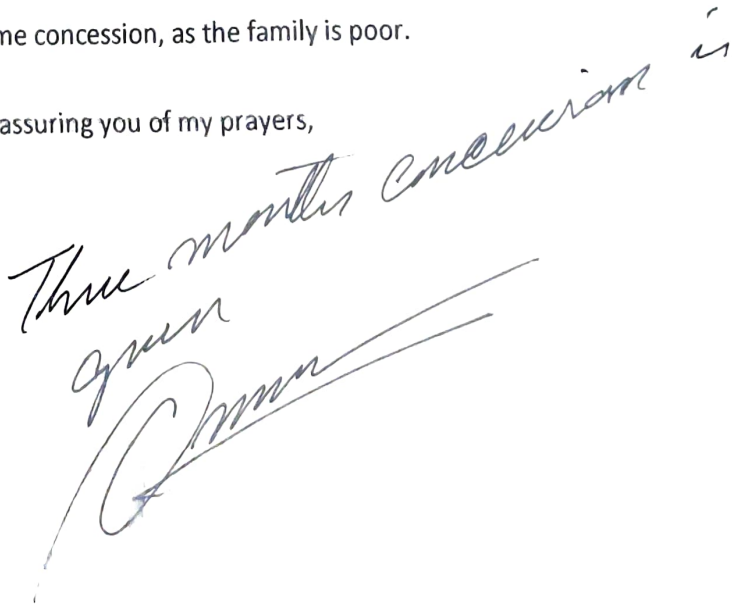 me concession, as the family is poor.
assuring you of my prayers,
Three months concession is
given